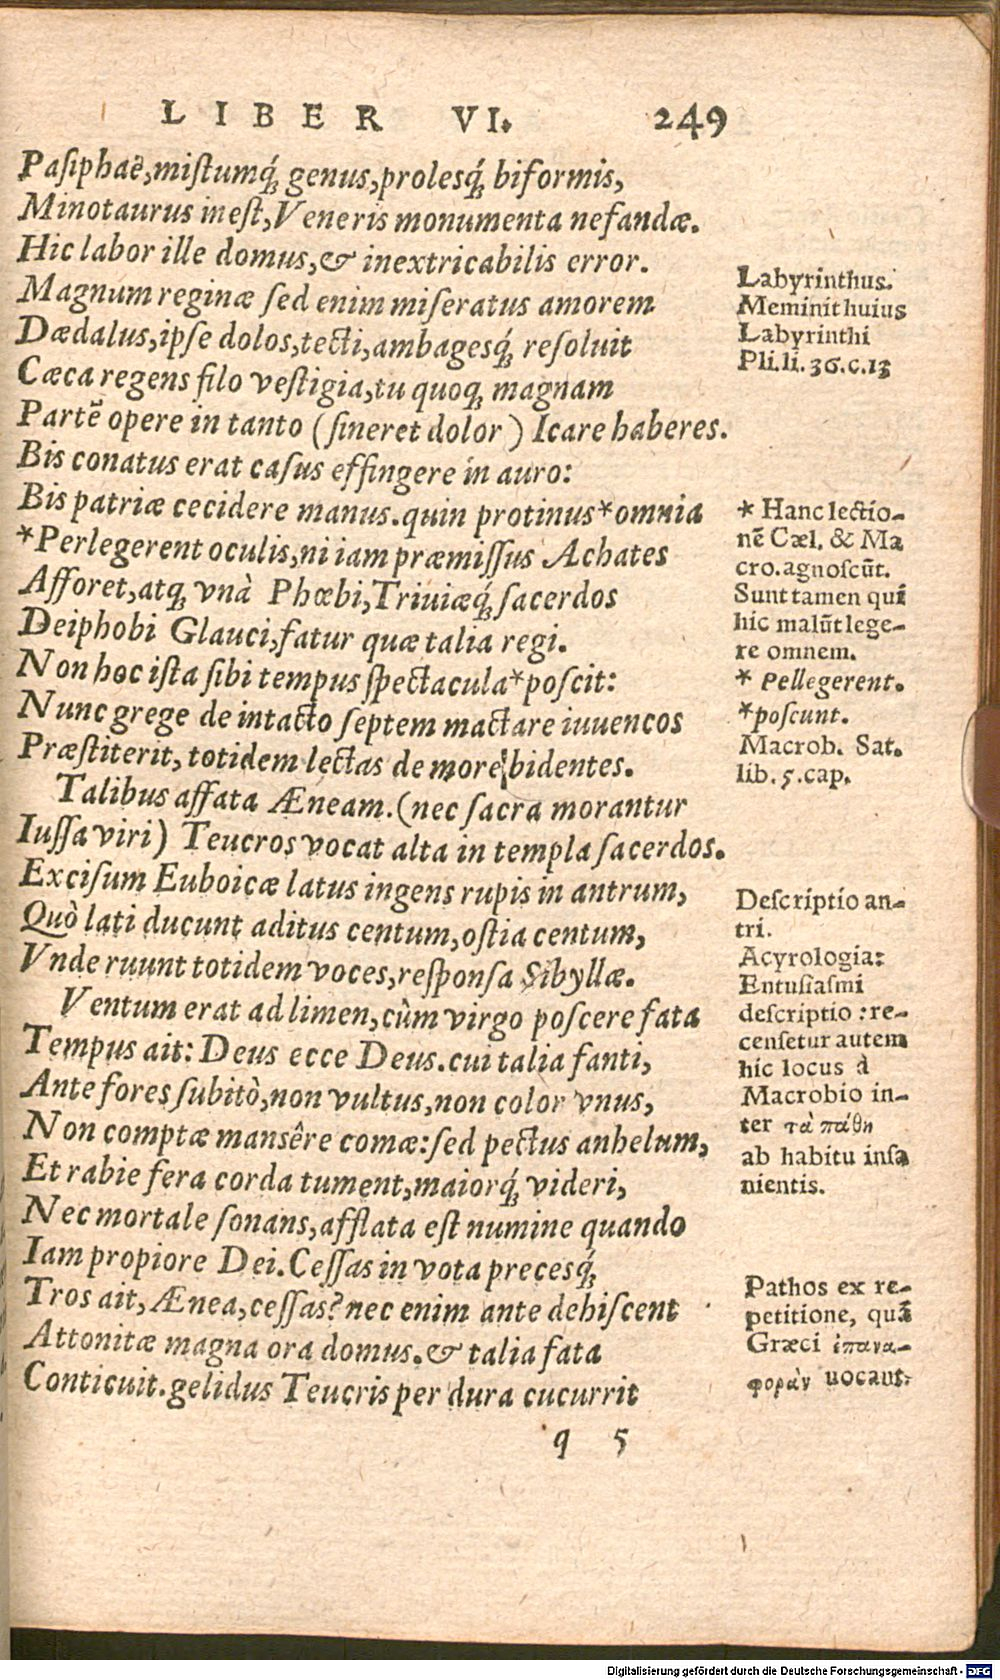 LIBER VI. 249
Paſiphaë, miſtumq́; genus, prolesq́; biformis,
Minotaurus ineſt, Veneris monumenta nefandæ.
Hic labor ille domus, & inextricabilis error.
Magnum reginæ ſed enim miſeratus amorem
Dædalus, ipſe dolos, tecti, ambagesq́; reſoluit
Cæca regens filo veſtigia, tu quoq; magnam
Partē opere in tanto (ſineret dolor) Icare haberes.
Bis conatus erat caſus effingere in auro:
Bis patriæ cecidere manus. quin protinus *omnia
*Perlegerent oculis, ni iam præmiſſus Achates
Afforet, atq; vnà Phœbi, Triuiæq́; ſacerdos
Deiphobi Glauci, fatur quæ talia regi.
Non hoc iſta ſibi tempus ſpectacula *poſcit:
Nunc grege de intacto ſeptem mactare iuuencos
Præſtiterit, totidem lectas de more bidentes.
Talibus affata Æneam. (nec ſacra morantur
Iuſſa viri) Teucros vocat alta in templa ſacerdos.
Exciſum Euboicæ latus ingens rupis in antrum,
Quò lati ducunt aditus centum, oſtia centum,
Vnde ruunt totidem voces, reſponſa Sibyllæ.
Ventum erat ad limen, cùm virgo poſcere fata
Tempus ait: Deus ecce Deus. cui talia fanti,
Ante fores ſubitò, non vultus, non color vnus,
Non comptæ mansêre comæ: ſed pectus anhelum,
Et rabie fera corda tument, maiorq́; videri,
Nec mortale ſonans, afflata eſt numine quando
Iam propiore Dei. Ceſſas in vota precesq́;
Tros ait, Ænea, ceſſas? nec enim ante dehiſcent
Attonitæ magna ora domus. & talia fata
Conticuit. gelidus Teucris per dura cucurrit
q 5
Labyrinthus.
Meminit huius
Labyrinthi
Pli. li. 36. c. 13
* Hanc lectio-
nē Cæl. & Ma
cro. agnoſcūt.
Sunt tamen qui
hic malūt lege-
re omnem.
* Pellegerent.
*poſcunt.
Macrob. Sat.
lib. 5. cap.
Deſcriptio an-
tri.
Acyrologia:
Entuſiaſmi
deſcriptio : re-
cenſetur autem
hic locus à
Macrobio in-
ter τὰ πάθη
ab habitu inſa
nientis.
Pathos ex re-
petitione, quã
Græci ἐπανα-
φορὰν uocant.
Digitalisierung gefördert durch die Deutsche Forschungsgemeinschaft - DFG